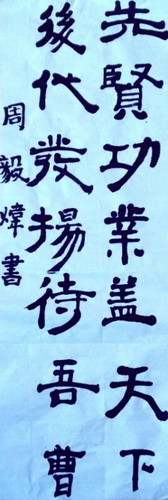 先賢功業盖天下
後代發揚待吾曹
周毅媁書